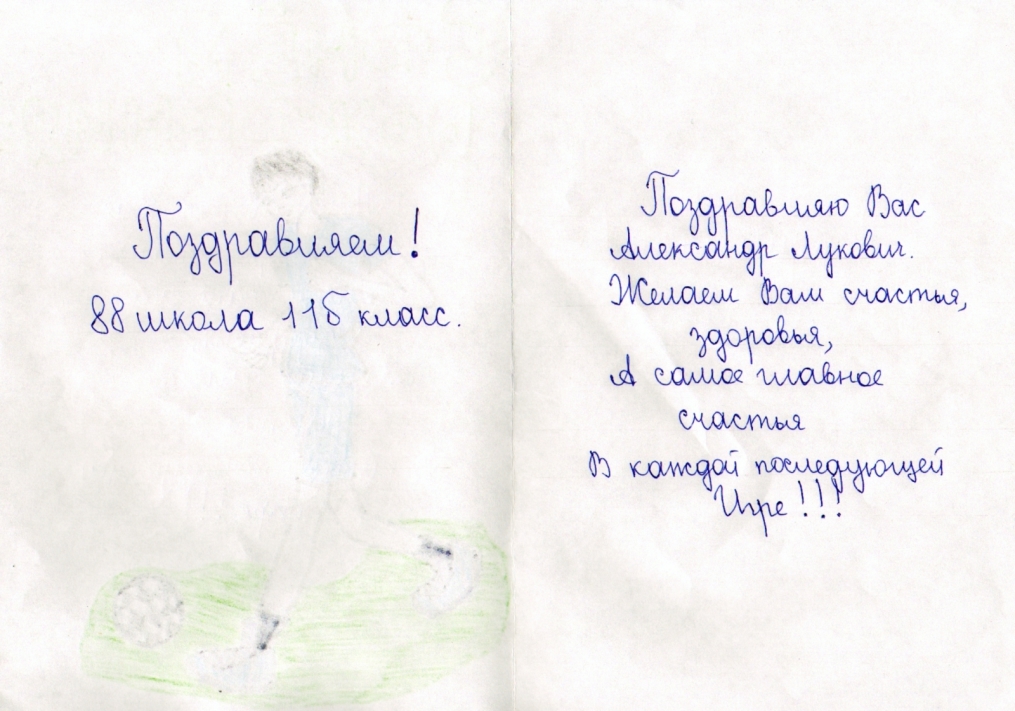 Поздравляем!
88 школа 11б класс.
Поздравляю Вас
Александр Лукович.
Желаем Вам счастья,
здоровья,
А самое главное
счастья
В каждой последующей
Игре!!!